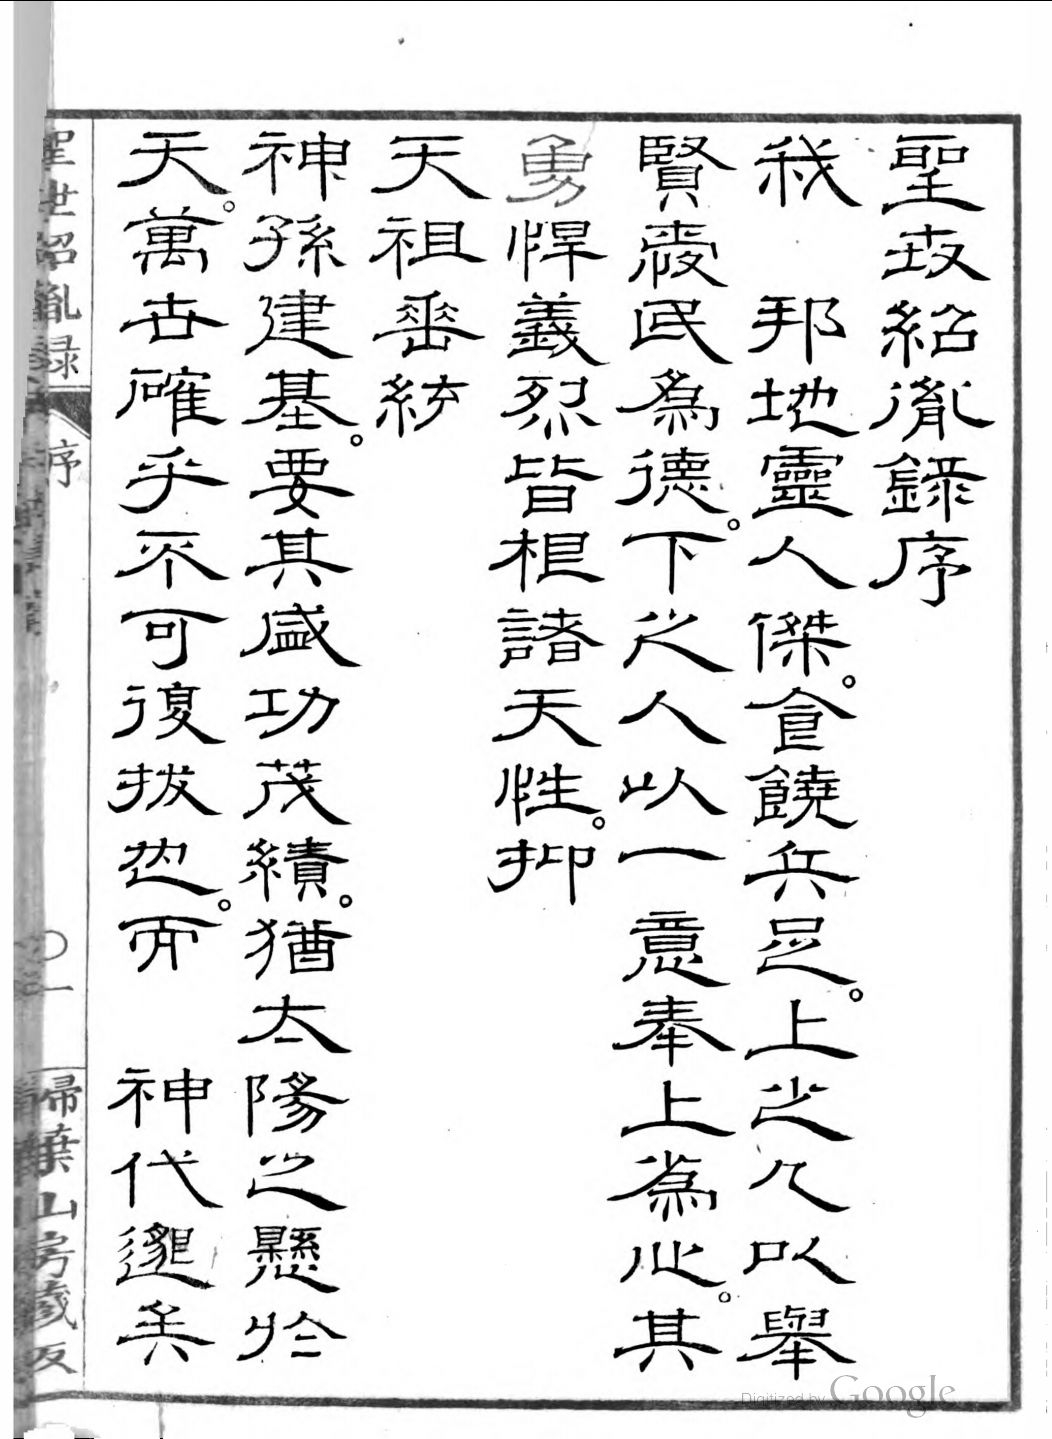 聖世紹胤錄序
我　邦地靈人傑。食饒兵足。上之人以擧
賢愛民爲德。下之人以一意奉上爲心。其
勇悍義烈皆根諸天性。抑
天祖垂統
神孫建基。要其盛功茂績。猶太陽之懸於
天。萬古確乎不可復拔也。而　神代邈矣
聖世紹胤録
序
〇一
掃葉山房藏
Digitized by Google